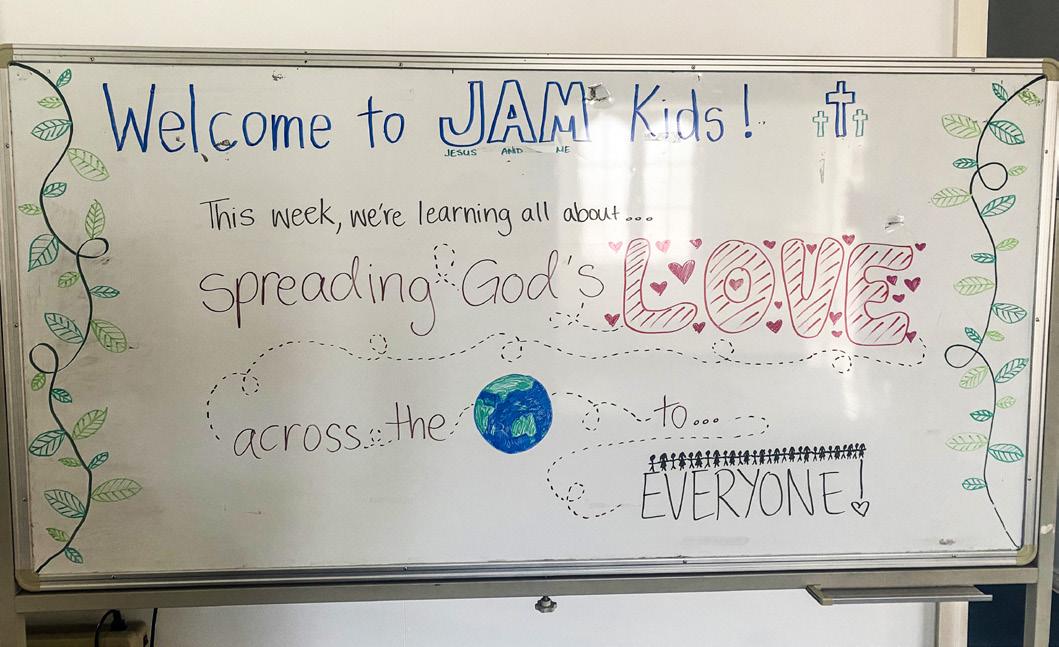 Welcome to JAM Kids!
JESUS AND ME
This week, we're learning all about...
spreading God's LOVE
across the to...
EVERYONE!